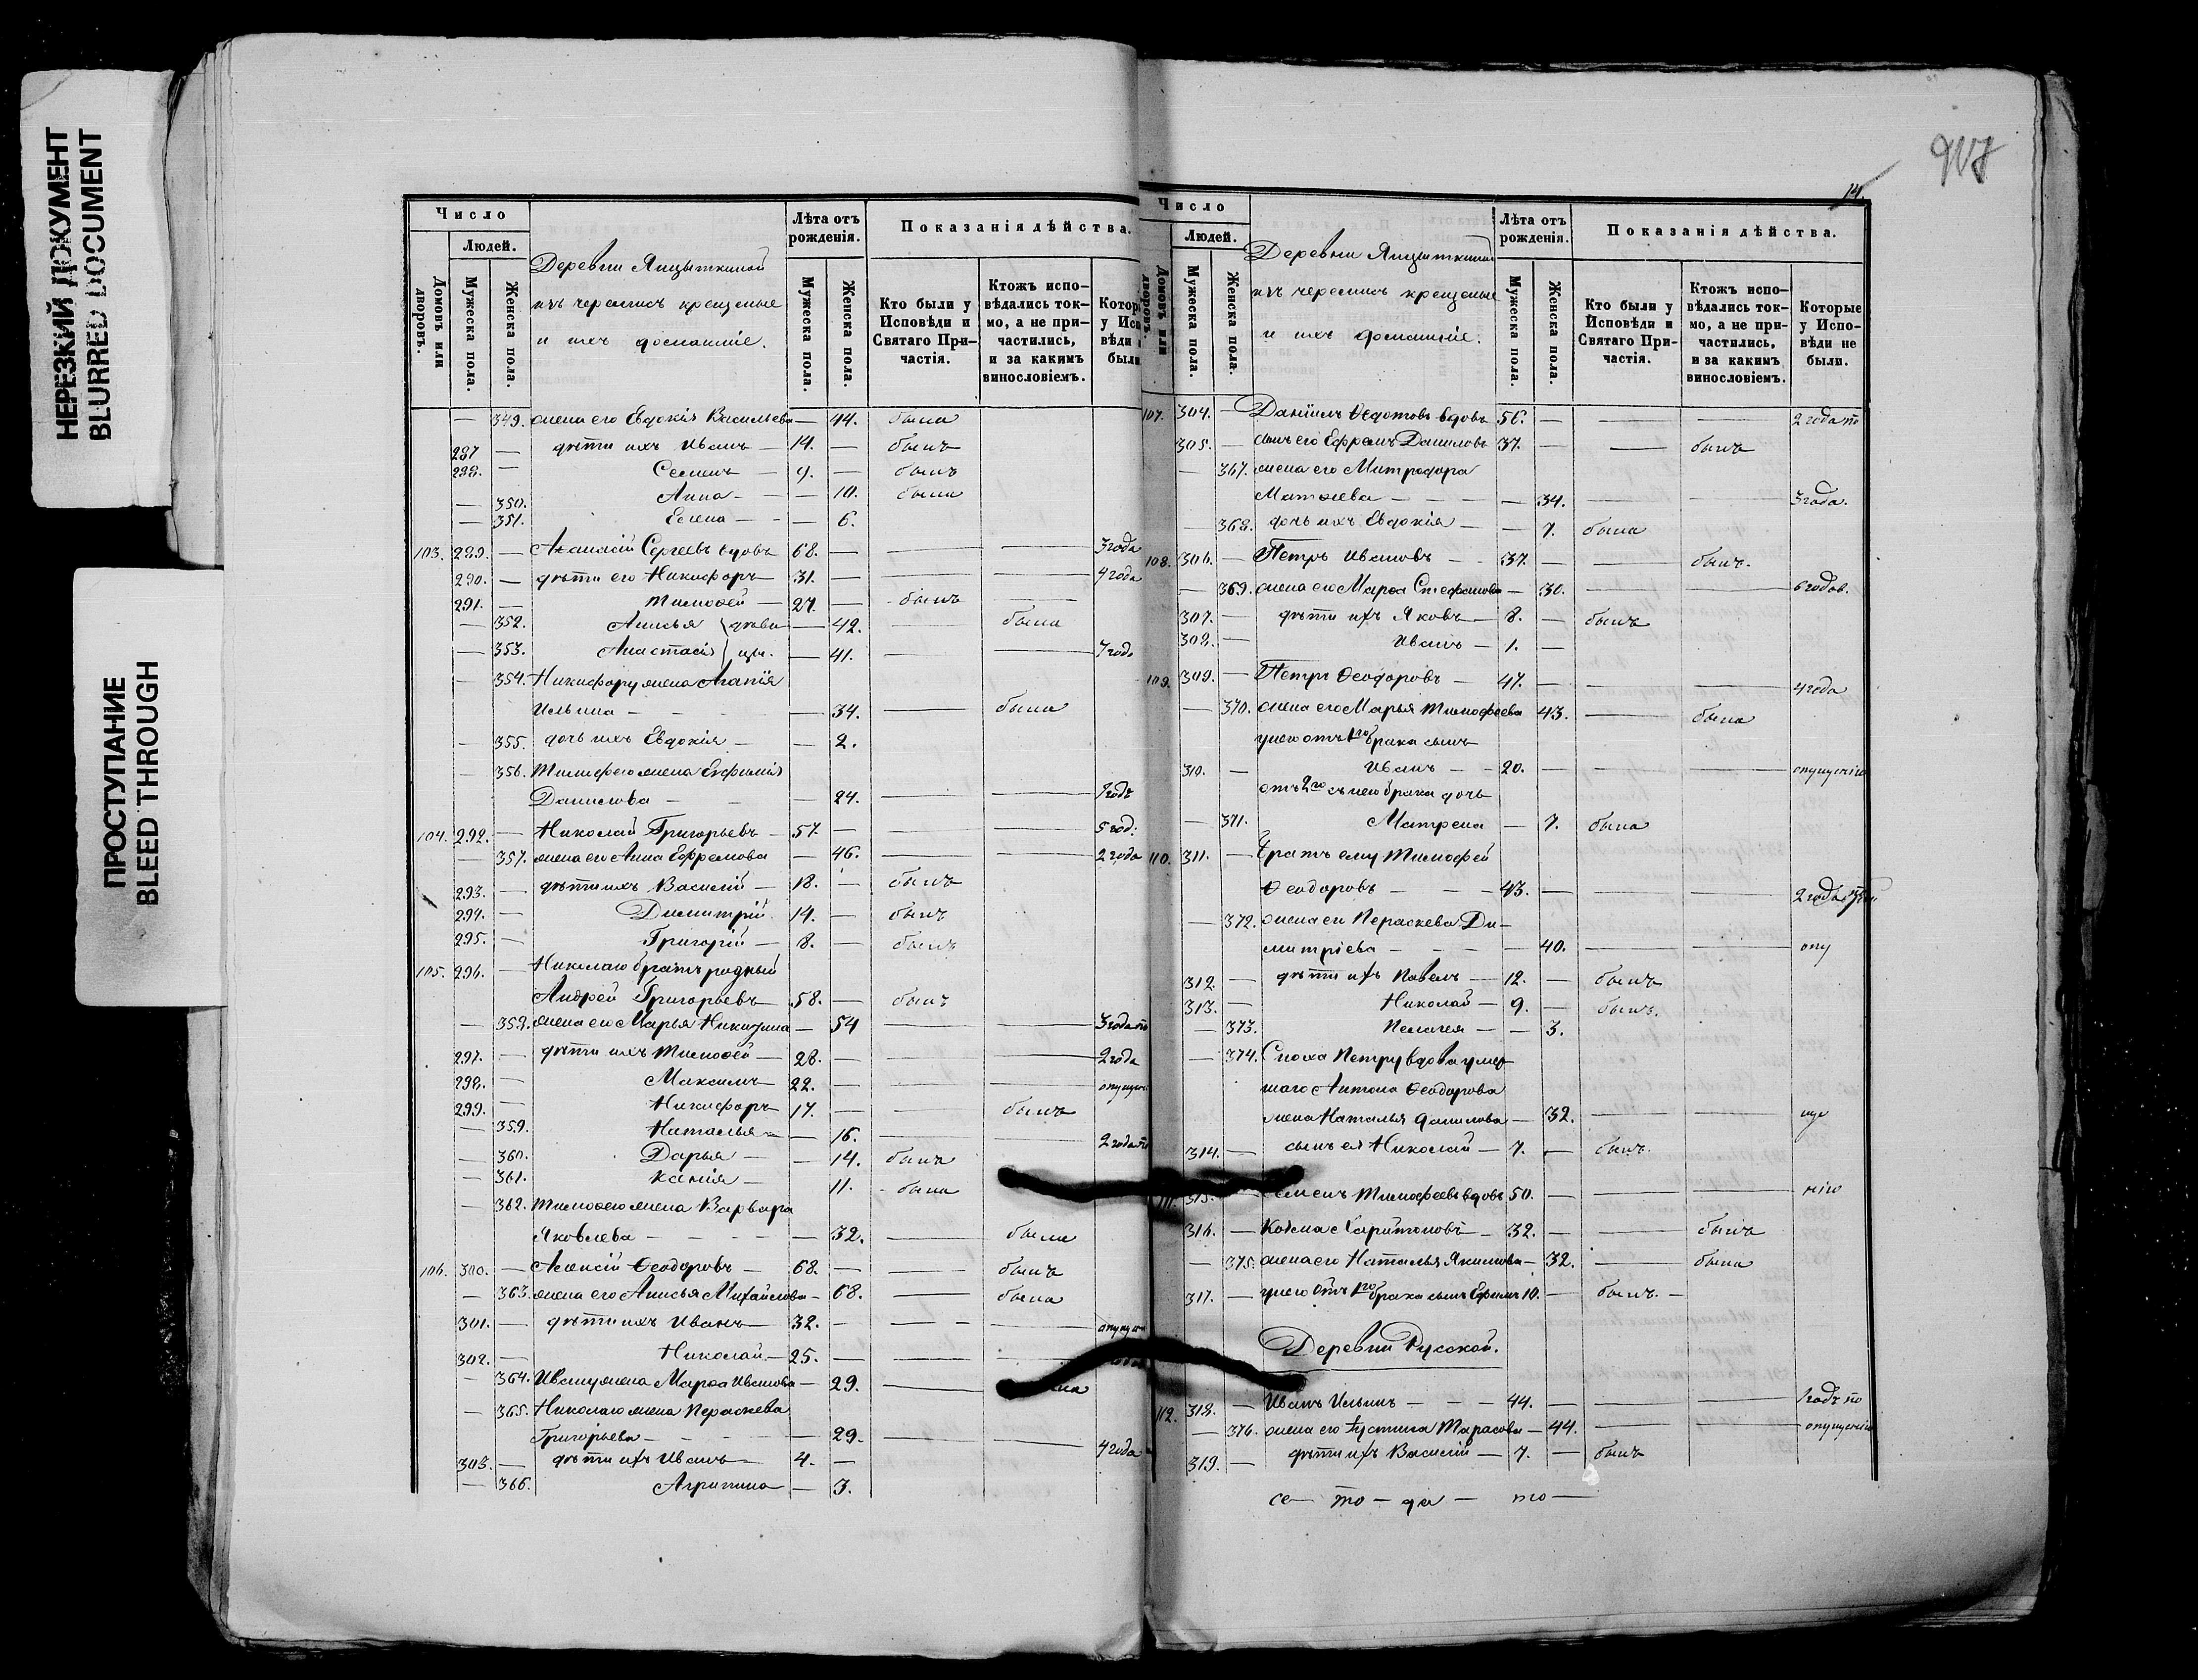 НЕРЕЗКИЙ ДОКУМЕНТ
BLURRED DOCUMENT
ПРОСТУПАНИЕ
BLEED THROUGH
Число
Людей.
Домовъ или дворовъ.
Мужеска пола.
Женска пола.
Деревни
изъ черемисъ крещеные
и ихъ домашніе.
Лѣта отъ рожденія.
Мужеска пола.
Женска пола.
Показанія дѣйства.
Кто были у Исповѣди и Святаго Причастія.
Ктожъ исповѣдались токмо, а не причастились, и за какимъ винословіемъ.
349. жена его Евдокія Васильева — 44. была
287 — дѣти ихъ Иванъ — 14. — былъ
288. — Семенъ — 9. — былъ
— 350. Анна — — 10. была
— 351. Елена — — 6.
103. 289. — Аѳанасій Сергеевъ вдовъ 68. — 3 года
290. — дѣти его Никифоръ 31. — 4 года
291. — Тимоѳей — 27. — былъ
— 352. Анисья — 42. — была
— 353. Анастасія — 41. — 7 годо
— 354. Никифору жена Агапія
Ильина — — 34. — была
— 355. дочь ихъ Евдокія — — 2.
— 356. Тимофею жена Евфимія
Данилова — — 24. — 1 годъ
104. 292. — Николай Григорьевъ — 57. — 5 год.
— 357. жена его Анна Ефремова — 46. — 2 года
293. — дѣти ихъ Василій — 18. — былъ
294. — Димитрій 14. — былъ
295. — Григорій — 8. — былъ
105. 296. — Николаю братъ родный
Андрей Григорьевъ — 58. — былъ
— 358. жена его Марья — 54 — 3 года по
297. — дѣти ихъ Тимоѳей — 28. — 2 года
298. — Максимъ — 22. — опущен
299. — Никифоръ 17. — былъ
— 359. Наталья — — 16. — 2 года по
— 360. Дарья — — 14. была
— 361. Ксенія — 11. была
— 362. Тимоѳею жена Варвара
Яковлева — — 32. — была
106. 300. — Алексій Ѳеодоровъ — 68. — былъ
— 363. жена его Анисья Михайлова — 68. — была
301. — дѣти ихъ Иванъ — 32. —
302. — Николай — 25. —
— 364. Ивану жена Марѳа Иванова — 29. —
— 365. Николаю жена Пераскева
Григорьева — — 29. — 4 года
303. — дѣти ихъ Иванъ — 4. —
— 366. Агрипина — 3.
14.
Число
Людей.
Домовъ или дворовъ.
Мужеска пола.
Женска пола.
Деревни
изъ черемисъ крещеные
и ихъ домашніе.
Лѣта отъ рожденія.
Мужеска пола.
Женска пола.
Показанія дѣйства.
Кто были у Исповѣди и Святаго Причастія.
Ктожъ исповѣдались токмо, а не причастились, и за какимъ винословіемъ.
Которые у Исповѣди не были.
107. 304. — Даніилъ Ѳедотовъ вдовъ 56. — 2 года по
305. — сынъ его Ефремъ Даниловъ 37. — былъ
— 367. жена его Митродора
Матѳеева — — 34. — 3 года.
368. дочь ихъ Евдокія — — 7. была
108. 306. — Петръ Ивановъ — 37. — былъ.
— 369. жена его Марѳа Стефанова — 30. — 6 годов.
307. — дѣти ихъ Яковъ — 8. — былъ
308. — Иванъ — 1. —
109. 309. — Петръ Ѳеодоровъ — 47. — 4 года
— 370. жена его Марья Тимофеева 43. — была
у него отъ 1го брака сынъ
310. — Иванъ — 20. —
отъ 2го съ нею брака дочь
— 371. Матрена — 7. была
110. 311. — Братъ ему Тимофей
Ѳеодоровъ — 43. — 2 года
— 372. жена его Пераскева Ди-
митріева — — 40. — опу
312 — дѣти ихъ Павелъ — 12. — былъ
313. — Николай — 9. — былъ.
— 373. Пелагея — — 3.
— 374. Сноха Петру вдова умер
шаго Антона Ѳеодорова
жена Наталья Данилова — 32. —
314. — сынъ ея Николай — 7. — былъ.
315. Семенъ Тимофеевъ вдовъ 50. —
316. — Козма Харитоновъ — 32. — былъ
— 375. жена его Наталья Якимова — 32. — была
317. — у него отъ 1го брака сынъ Ефимъ 10. — былъ. —
Деревни Русской.
112. 318. — Иванъ Ильинъ — 44. — 1 годъ по
— 376. жена его Устина Тарасова — 44. — опущенію
319. — дѣти ихъ Василій — 7. — былъ
се — то — да — то —